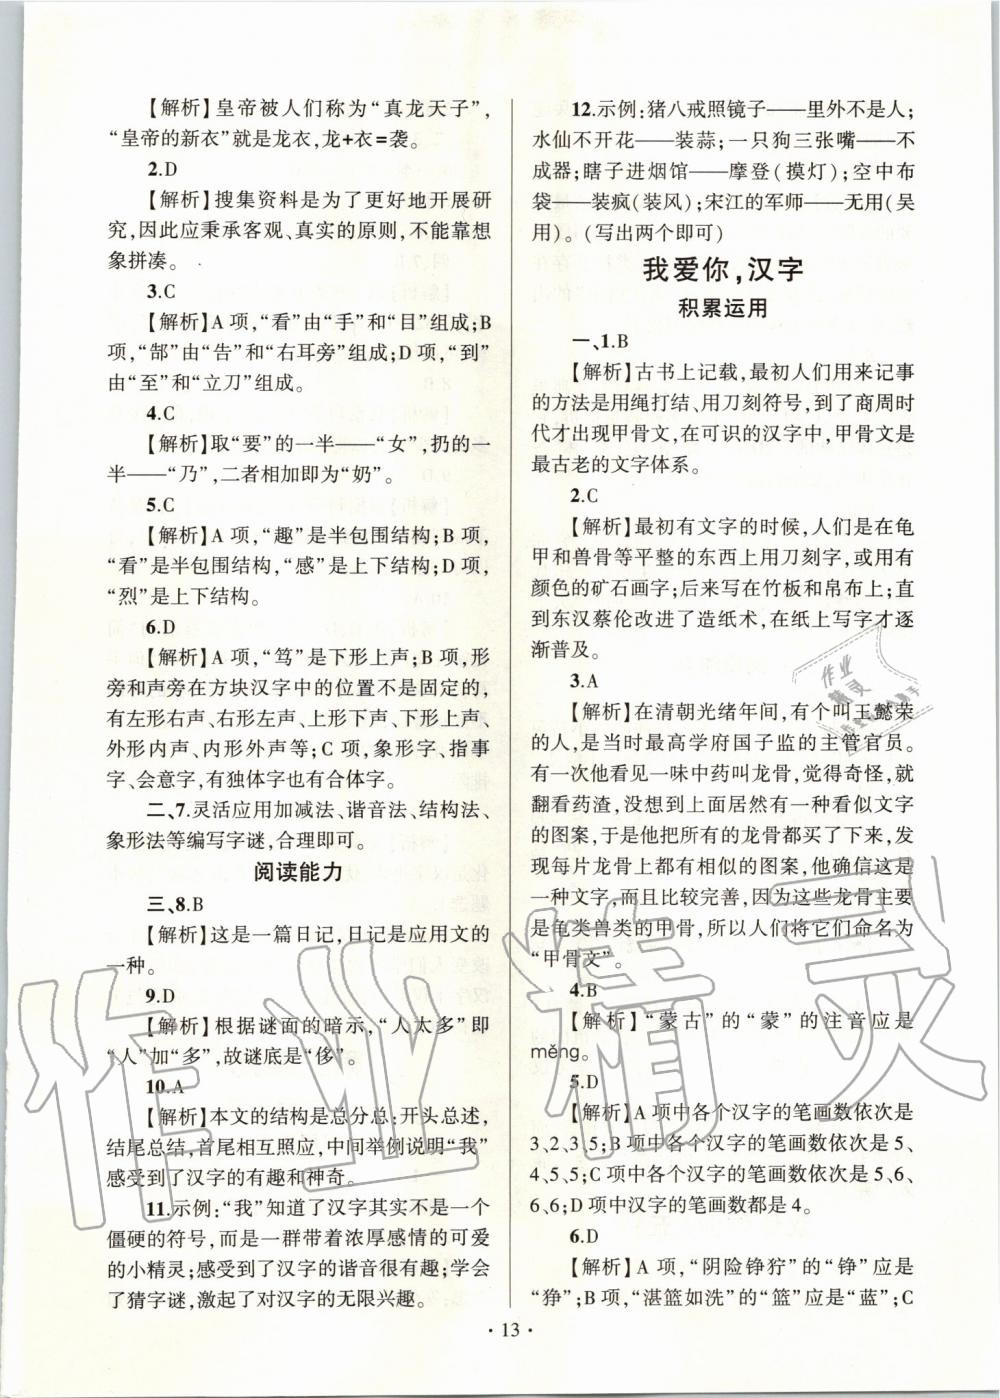 【解析】皇帝被人们称为“真龙天子”，
“皇帝的新衣”就是龙衣,龙+衣=袭。
2.D
【解析】搜集资料是为了更好地开展研
究,因此应秉承客观、真实的原则,不能靠想
象拼凑。
3.C
【解析】A 项,“看”由“手”和“目”组成;B
项,“郜”由“告”和“右耳旁”组成;D 项,“到”
由“至”和“立刀”组成。
4.C
【解析】取“要”的一半——“女”,扔的一
半——“乃”,二者相加即为“奶”。
5.C
【解析】A 项,“趣”是半包围结构;B 项,
“看”是半包围结构,“感”是上下结构;D 项,
“烈”是上下结构。
6.D
【解析】A 项,“笃”是下形上声;B 项,形
旁和声旁在方块汉字中的位置不是固定的,
有左形右声、右形左声、上形下声、下形上声、
外形内声、内形外声等;C 项,象形字、指事
字、会意字,有独体字也有合体字。
二、7.灵活应用加减法、谐音法、结构法、
象形法等编写字谜,合理即可。
阅读能力
三、8.B
【解析】这是一篇日记,日记是应用文的
一种。
9.D
【解析】根据谜面的暗示,“人太多”即
“人”加“多”,故谜底是“侈”。
10.A
【解析】本文的结构是总分总:开头总述,
结尾总结,首尾相互照应,中间举例说明“我”
感受到了汉字的有趣和神奇。
11.示例:“我”知道了汉字其实不是一个
僵硬的符号,而是一群带着浓厚感情的可爱
的小精灵;感受到了汉字的谐音很有趣;学会
了猜字谜,激起了对汉字的无限兴趣。
12.示例:猪八戒照镜子——里外不是人;
水仙不开花——装蒜;一只狗三张嘴——不
成器;瞎子进烟馆——摩登(摸灯);空中布
袋——装疯(装风);宋江的军师——无用(吴
用)。(写出两个即可)
我爱你,汉字
积累运用
一、1.B
【解析】古书上记载,最初人们用来记事
的方法是用绳打结、用刀刻符号,到了商周时
代才出现甲骨文,在可识的汉字中,甲骨文是
最古老的文字体系。
2.C
【解析】最初有文字的时候,人们是在龟
甲和兽骨等平整的东西上用刀刻字,或用有
颜色的矿石画字;后来写在竹板和帛布上;直
到东汉蔡伦改进了造纸术,在纸上写字才逐
渐普及。
3.A
【解析】在清朝光绪年间,有个叫王懿荣
的人,是当时最高学府国子监的主管官员。
有一次他看见一味中药叫龙骨,觉得奇怪,就
翻看药渣,没想到上面居然有一种看似文字
的图案,于是他把所有的龙骨都买了下来,发
现每片龙骨上都有相似的图案,他确信这是
一种文字,而且比较完善,因为这些龙骨主要
是龟类兽类的甲骨,所以人们将它们命名为
“甲骨文”。
4.B
【解析】“蒙古”的“蒙”的注音应是
měng。
5.D
【解析】A 项中各个汉字的笔画数依次是
3、2、3、5;B 项中各个汉字的笔画数依次是 5、
4、5、5;C 项中各个汉字的笔画数依次是 5、6、
6、6;D 项中汉字的笔画数都是 4。
6.D
【解析】A 项,“阴险铮狞”的“铮”应是
“狰”;B 项,“湛篮如洗”的“篮”应是“蓝”;C
· 13 ·
作业精灵
作业
精灵